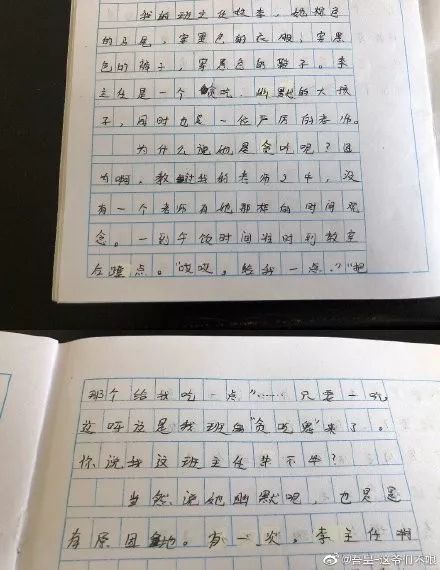 我的班主任姓李，她棕色
的马尾，穿黑色的衣服，穿黑
色的裤子，穿黑色的鞋子。李
主任是一个贪吃，幽默的大孩
子，同时也是一位严厉的老师。
为什么说她是贪吃呢？因
为啊，教过我的老师24，没
有一个老师有她那样的时间观
念。一到午饭时间准时到教室
左蹭点。“哎哎。给我一点，”“把
那个给我吃一点”……只要一吃
这呀这是我班的“贪吃鬼”来了。
你说我这班主任幸不幸？
当然，说她幽默呢，也只是
有原因地。有一次，李主任啊
@吾里-这爷们不咀